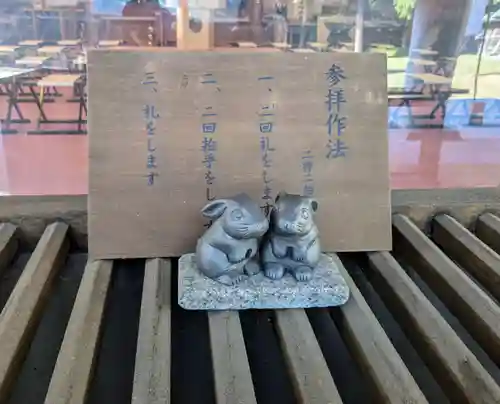 参拝作法
一、二回礼をします
二、二回拍手をし
三、礼をします